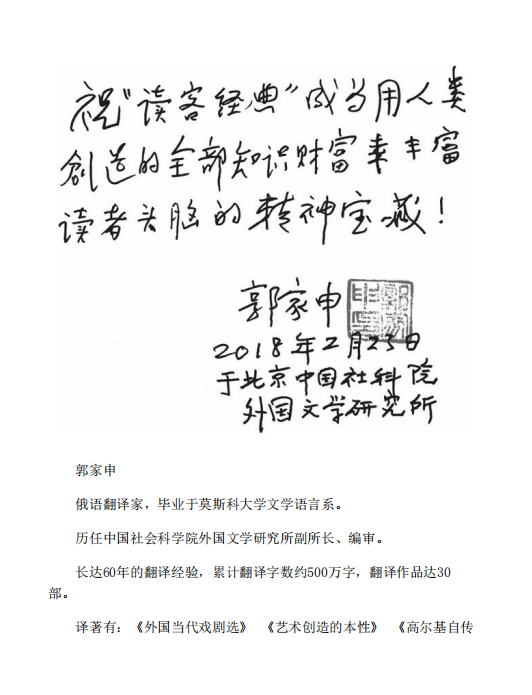 祝“读客经典”成为用人类
創造的全部知识财富来丰富
读者头脑的精神宝藏！
郭家申
2018年2月23日
于北京中国社科院
外国文学研究所
郭家申
俄语翻译家，毕业于莫斯科大学文学语言系。
历任中国社会科学院外国文学研究所副所长、编审。
长达60年的翻译经验，累计翻译字数约500万字，翻译作品达30
部。
译著有：《外国当代戏剧选》 《艺术创造的本性》 《高尔基自传